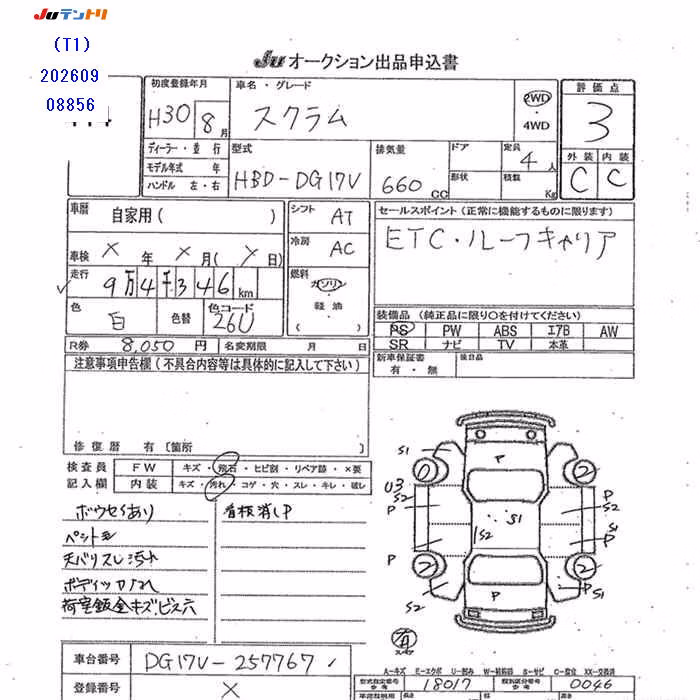 Juテントリ
(T1)
202609
08856
Ju オークション出品申込書
初度登録年月 車名・グレード 2WD ・ 4WD 評価点
H30 8月 スクラム 3
ディーラー・並行 型式 排気量 ドア 定員 4人 外装 内装
モデル年式 年 HBD-DG17V 660cc 形状 積載 Kg C C
ハンドル 左・右
車暦 自家用( ) シフト AT セールスポイント(正常に機能するものに限ります)
車検 X年X月(X日) 冷房 AC ETC・ルーフキャリア
走行 9万4千346km 燃料 ガソリン・軽油・( )
色 白 色替 色コード 26U 装備品(純正品に限り〇を付けてください)
PS PW ABS エアB AW
SR ナビ TV 本革
R券 8,050円 名変期限 月 日 新車保証書 有・無 後日品
注意事項申告欄(不具合内容等は具体的に記入して下さい)
修復暦 有〔箇所 〕
検査員 FW キズ・飛石・ヒビ割・リペア跡・×要
記入欄 内装 キズ・汚れ・コゲ・穴・スレ・キレ・破レ
ボウセイあり 看板消しP
天バリスレ汚れ
荷室鈑金キズビス穴
S1 P S1
U3 S2 P P S2
S1 S2 S1 P
P P S2 P S1
2 2 2
有
車台番号 DG17V-257767
登録番号 X
A-キズ E-エクボ U-凹み W-補修跡 S-サビ C-腐食 XX-交換済
型式指定番号 18017 類別区分番号 0046